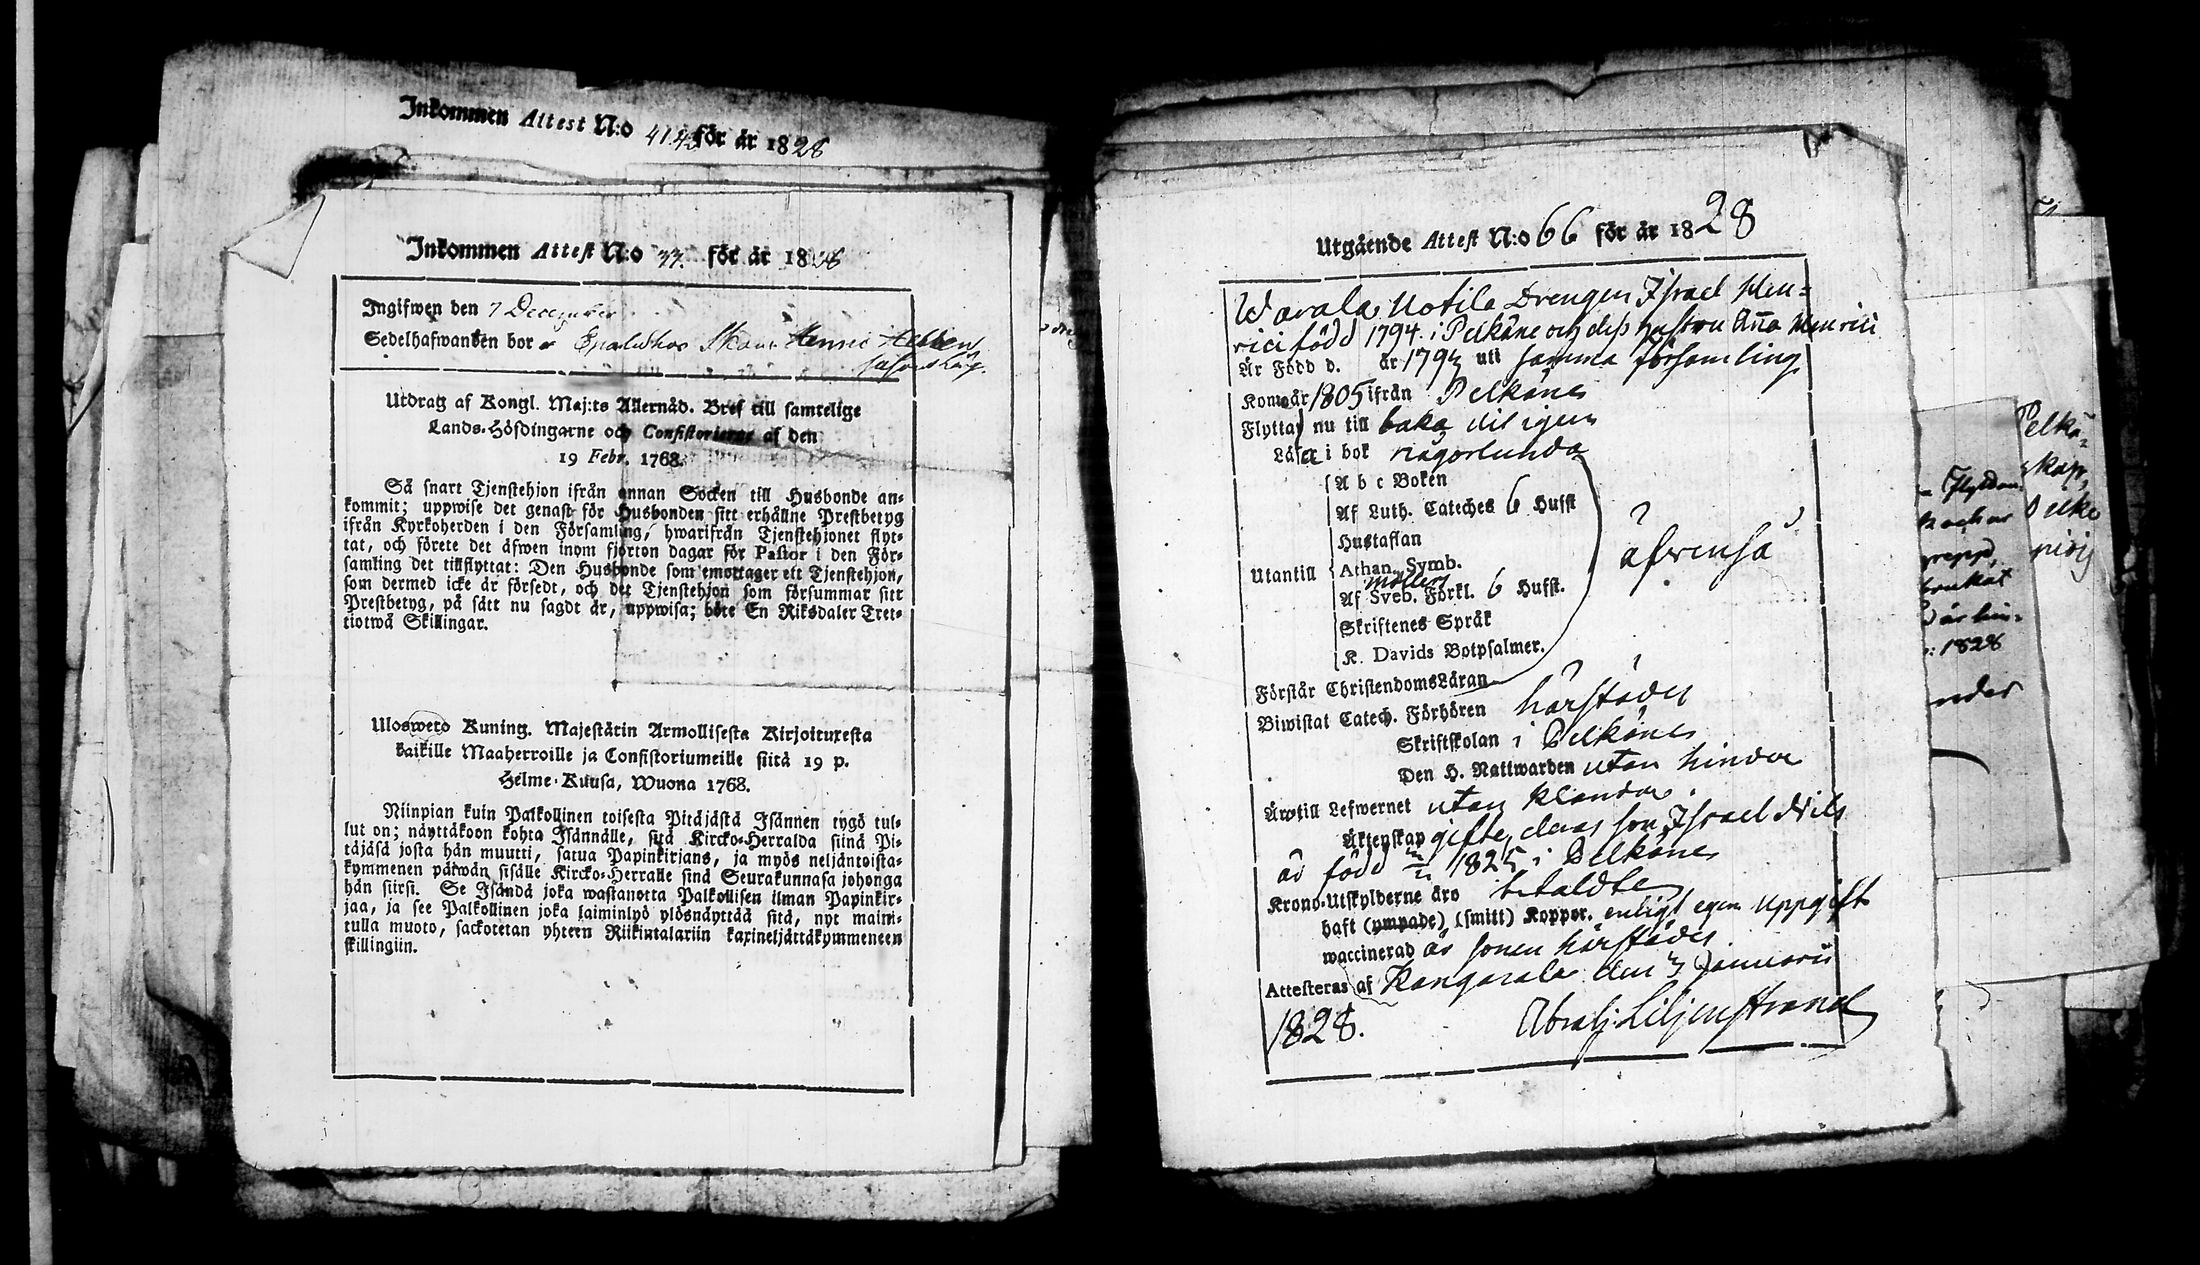 Inkommen Attest N:o för år 1828
Inkommen Attest N:o 77. för år 18
Ingifwen den 7 December
Sedelhafwanden bor
Utdrag af Kongl. Maj:ts Allernåd. Bref till samtelige
Lands-Höfdingarne och Consistorierne af den
19 Febr. 1768.
Så snart Tjenstehjon ifrån annan Socken till Husbonde an-
kommit; uppwise det genast för Husbonden sitt erhållne Prestbetyg
ifrån Kyrkoherden i den Församling, hwarifrån Tjenstehjonet flyt-
tat, och förete det äfwen inom fjorton dagar för Pastor i den För-
samling det tillflyttat: Den Husbonde som emottager ett Tjenstehjon,
som dermed icke är försedt, och det Tjenstehjon som försummar sitt
Prestbetyg, på sätt nu sagdt är, uppwisa; böte En Riksdaler Tret-
tiotwå Skillingar.
Ulosweto Kuning. Majestätin Armollisesta Kirjoituxesta
kaikille Maaherroille ja Consistoriumeille siitä 19 p.
Helme-Kuusa, Wuona 1768.
Niinpian kuin Palkollinen toisesta Pitäjästä Isännen tygö tul-
lut on; näyttäkoon kohta Isännälle, sitä Kircko-Herralda siinä Pi-
täjäsä josta hän muutti, saatua Papinkirjans, ja myös neljäntoista-
kymmenen päiwän sisälle Kircko-Herralle sinä Seurakunnasa johonga
hän siirsi. Se Isändä joka wastanotta Palkollisen ilman Papinkir-
jaa, ja see Palkollinen joka laiminlyö ylösnäyttää sitä, nyt maini-
tulla muoto, sackotetan yhteen Riikintalariin kaxineljättäkymmeneen
skillingiin.
Utgående Attest N:o 66 för år 1828
Warala Uotila Drengen Israel Hen-
rici född 1794. i Pelkäne och dess hustru Anna Henrici
Är Född d. år 1794 uti samma församling
Kom år 1805 ifrån Pelkäne
Flyttar nu till baka dit igen
Läsa i bok någorlunda
A b c Boken
Af Luth. Cateches 6 Hufst
Hustaflan
Utantill
Athan. Symb.
möllers
Af Sveb. Förkl. 6 Hufst.
Skriftenes Språk
K. Davids Botpsalmer.
äfwenså
Förstår ChristendomsLäran
Biwistat Catech. Förhören härstädes
Skriftskolan i Pelkäne
Den H. Nattwarden utan hinder
Är till Lefwernet utan klander.
Äktenskap gifte, deras son Israel Nils
är född 1825 i Pelkäne
Krono-Utskylderne äro betaldte
haft (ympade) (smitt) Koppor. enligt egen uppgift
waccinerad är sonen härstädes.
Attesteras af Kangasala den 3 Januarii
1828. Abrah: Liljenstrand
Pelkä-
1828